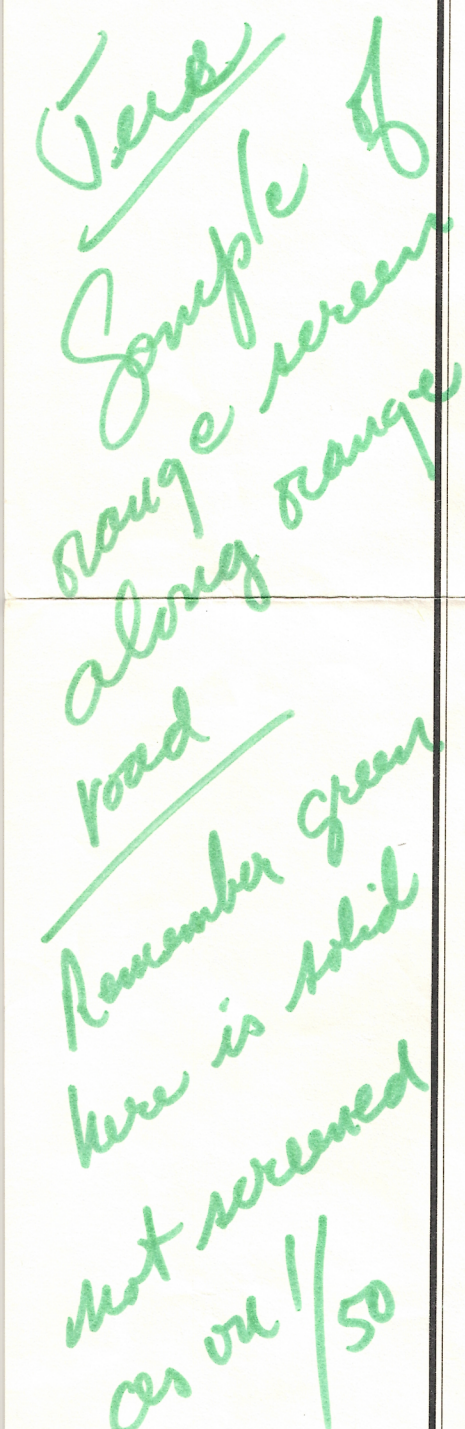 Sample of
orange screen
along orange
road
Remember green
here is solid
not screened
as on 1/50